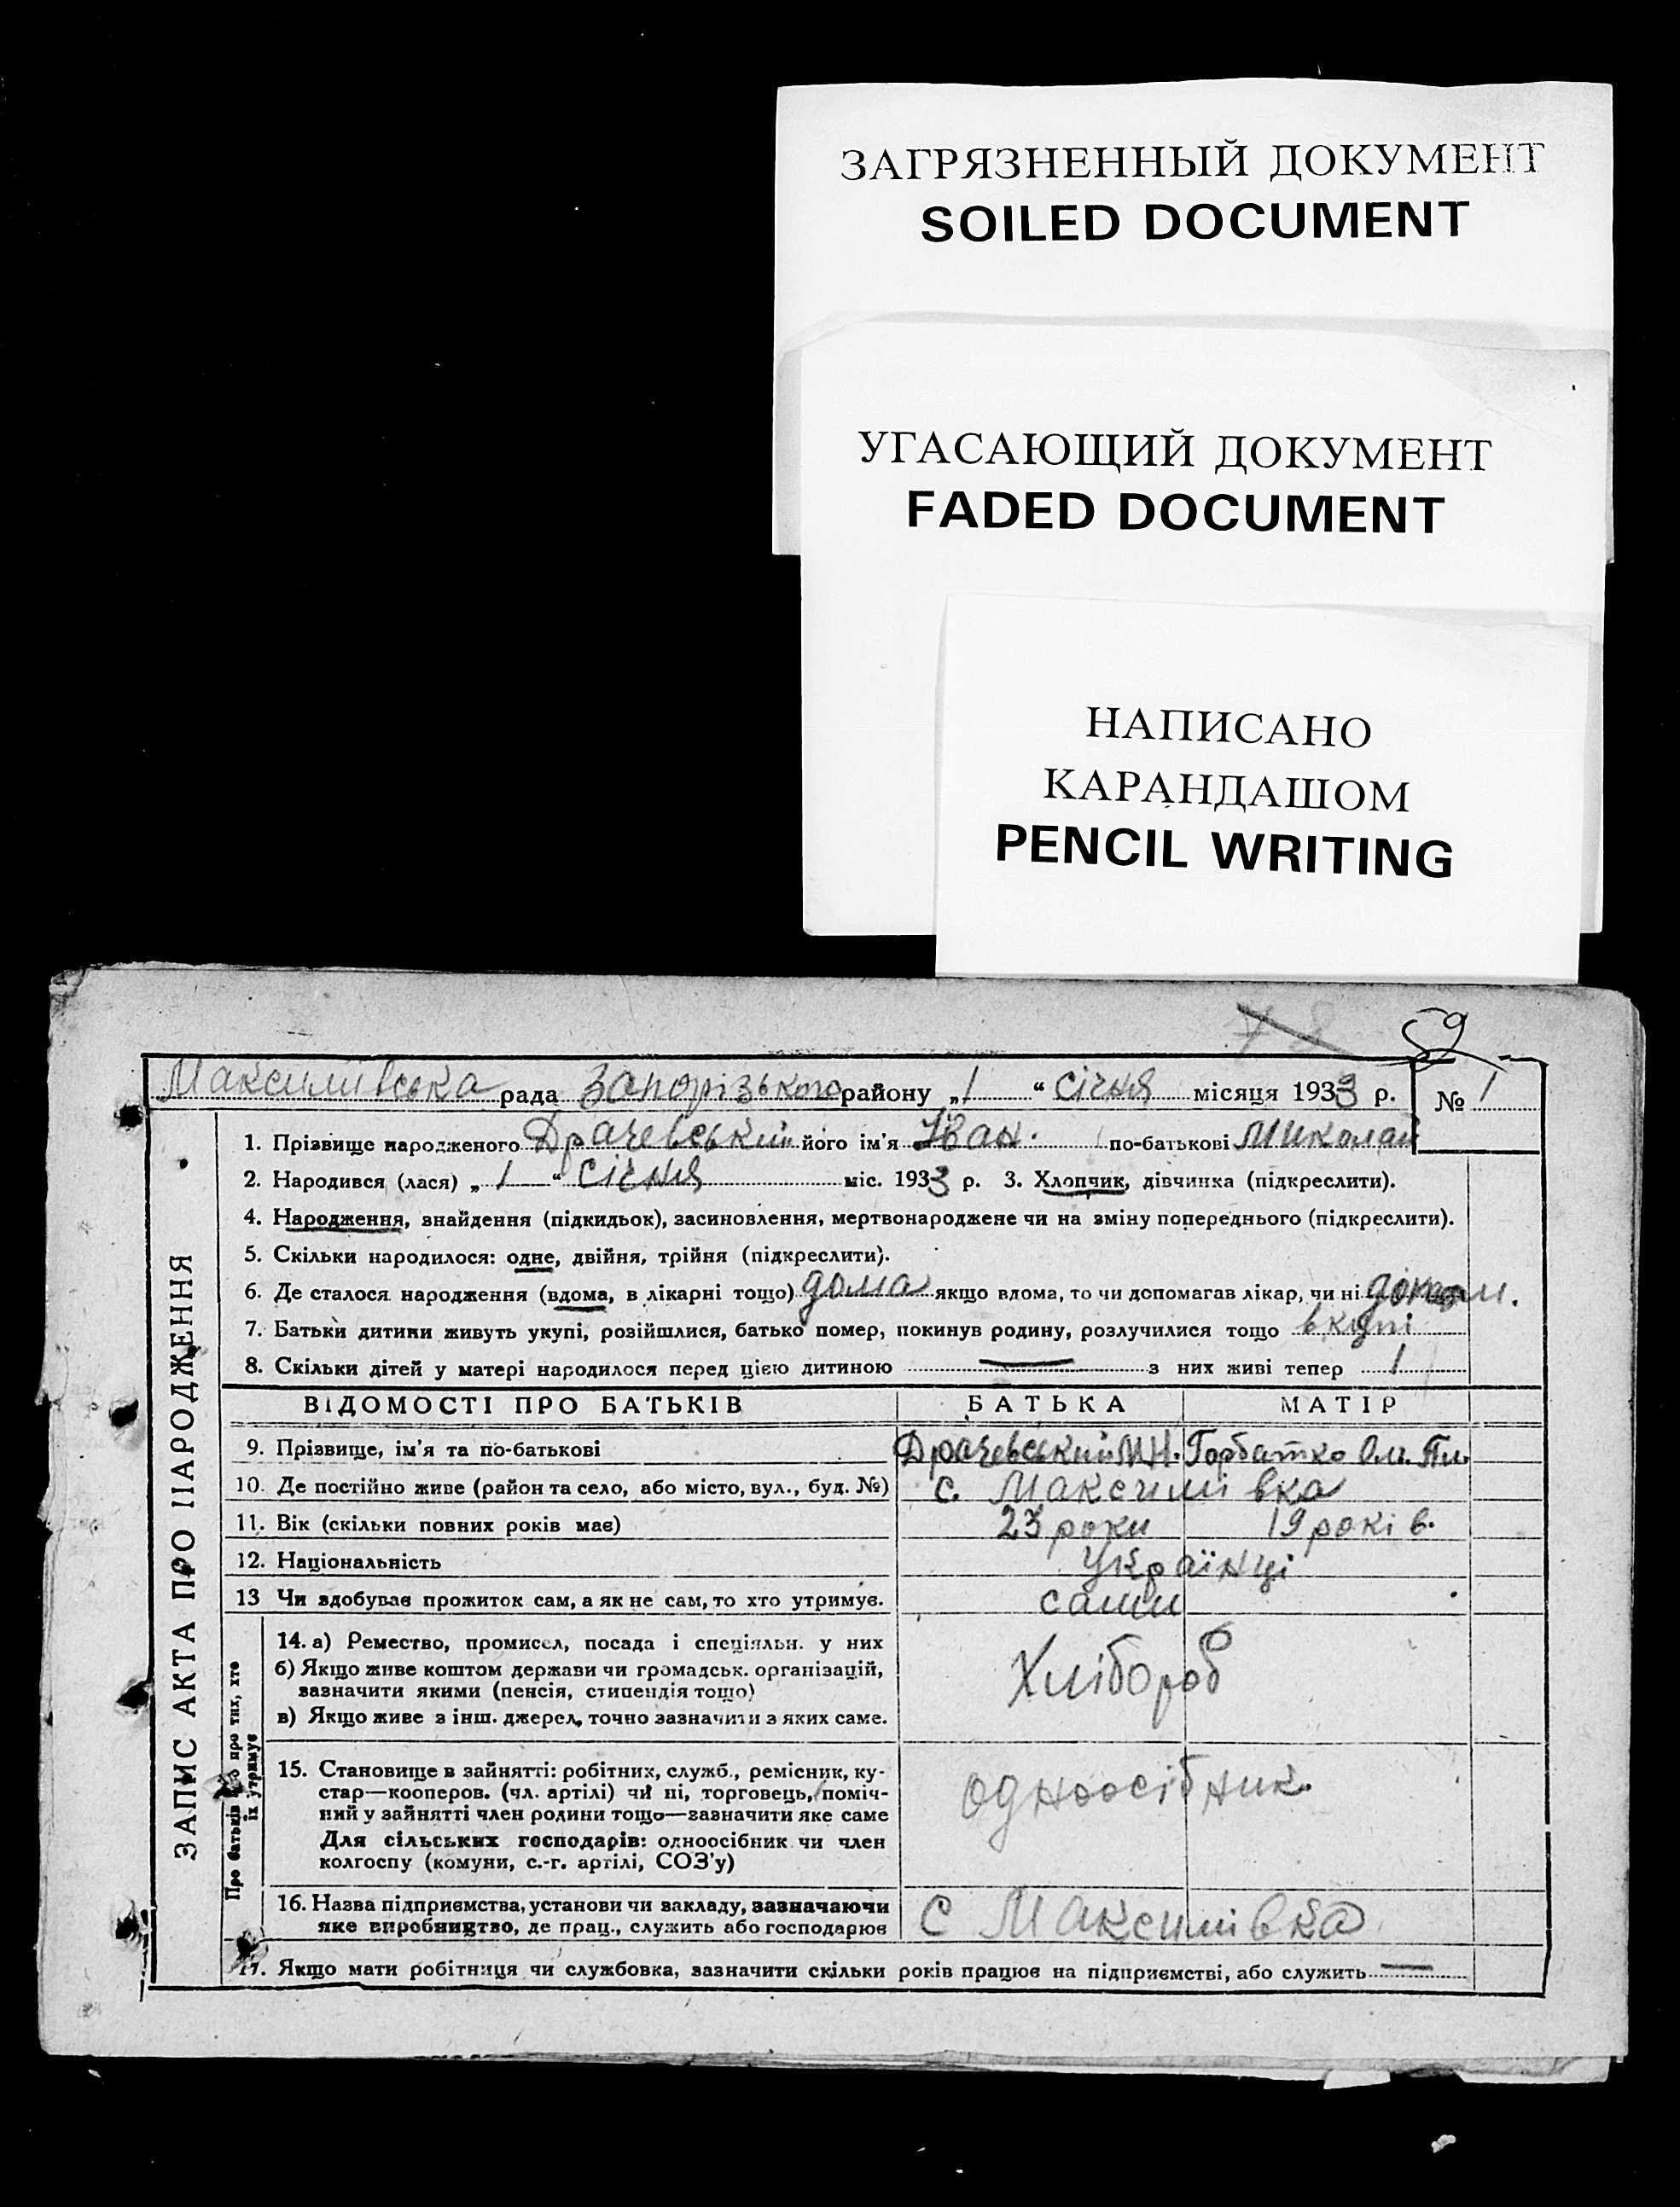 ЗАГРЯЗНЕННЫЙ ДОКУМЕНТ
SOILED DOCUMENT
УГАСАЮЩИЙ ДОКУМЕНТ
FADED DOCUMENT
НАПИСАНО
КАРАНДАШОМ
PENCIL WRITING
59
Максимівська рада Запорізького району „1“ січня місяця 1933 р. № 1
ЗАПИС АКТА ПРО НАРОДЖЕННЯ
1. Прізвище народженого Драчевський його ім'я Іван. по-батькові Миколай
2. Народився (лася) „1“ січня міс. 1933 р. 3. Хлопчик, дівчинка (підкреслити).
4. Народження, знайдення (підкидьок), засиновлення, мертвонароджене чи на зміну попереднього (підкреслити).
5. Скільки народилося: одне, двійня, трійня (підкреслити).
6. Де сталося народження (вдома, в лікарні тощо) дома якщо вдома, то чи допомагав лікар, чи ні
7. Батьки дитини живуть укупі, розійшлися, батько помер, покинув родину, розлучилися тощо вкупі
8. Скільки дітей у матері народилося перед цією дитиною — з них живі тепер 1
ВІДОМОСТІ ПРО БАТЬКІВ БАТЬКА МАТІР
9. Прізвище, ім'я та по-батькові Драчевський М.Н. Горбатко Ом. Пл.
10. Де постійно живе (район та село, або місто, вул., буд. №) с. Максимівка
11. Вік (скільки повних років має) 23 роки 19 років.
12. Національність Українці
13 Чи здобував прожиток сам, а як не сам, то хто утримує. сами
Про батьків про тих, хто
їх утримує
14. а) Ремество, промисел, посада і спеціяльн. у них
б) Якщо живе коштом держави чи громадськ. організацій,
зазначити якими (пенсія, стипендія тощо)
в) Якщо живе з інш. джерел, точно зазначити з яких саме.
Хлібороб
15. Становище в зайнятті: робітник, служб., ремісник, ку-
стар—кооперов. (чл. артілі) чи ні, торговець, поміч-
ний у зайнятті член родини тощо—зазначити яке саме
Для сільських господарів: одноосібник чи член
колгоспу (комуни, с.-г. артілі, СОЗ'у)
одноосібник.
16. Назва підприємства, установи чи закладу, зазначаючи
яке виробництво, де прац., служить або господарює
с Максимівка
17. Якщо мати робітниця чи службовка, зазначити скільки років працює на підприємстві, або служить —